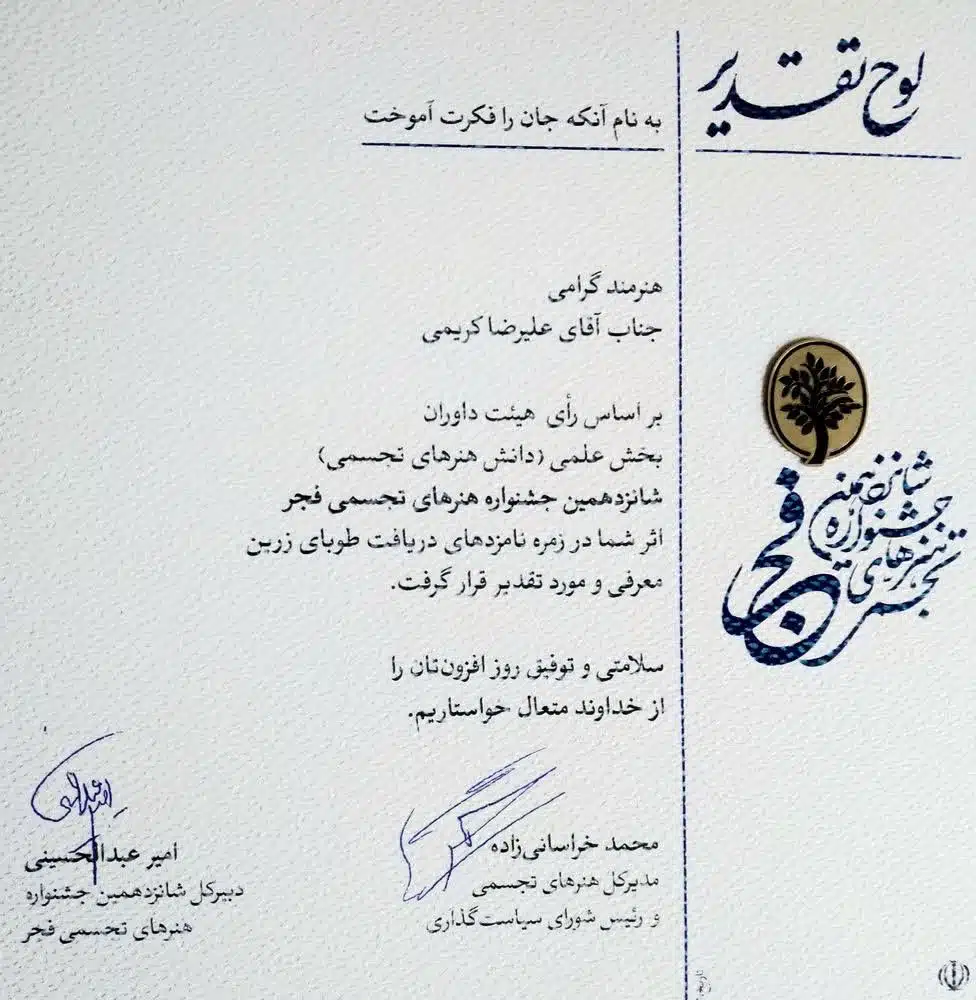 لوح تقدیر
به نام آنکه جان را فکرت آموخت
هنرمند گرامی
جناب آقای علیرضا کریمی
بر اساس رأی هیئت داوران
بخش علمی (دانش هنرهای تجسمی)
شانزدهمین جشنواره هنرهای تجسمی فجر
اثر شما در زمره نامزدهای دریافت طوبای زرین
معرفی و مورد تقدیر قرار گرفت.
سلامتی و توفیق روز افزون‌تان را
از خداوند متعال خواستاریم.
شانزدهمین
جشنواره
هنرهای
تجسمی
فجر
محمد خراسانی‌زاده
مدیرکل هنرهای تجسمی
و رئیس شورای سیاست‌گذاری
امیر عبدالحسینی
دبیرکل شانزدهمین جشنواره
هنرهای تجسمی فجر